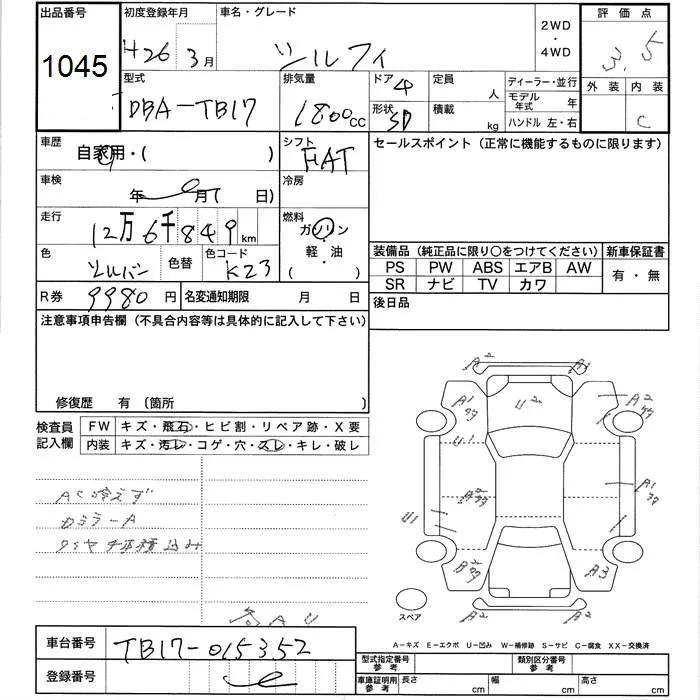 出品番号 初度登録年月 車名・グレード 2WD・4WD 評価点
1045 H26年 3月 シルフィ 3.5
型式 排気量 ドア 4 定員 人 ディーラー・並行 外装 内装
DBA-TB17 1800cc 形状 SD 積載 kg モデル年式 年 C
ハンドル 左・右
車歴 自家用・( ) シフト FAT セールスポイント (正常に機能するものに限ります)
車検 年 月( 日) 冷房
走行 12万6千849km 燃料 ガソリン
軽・油
( )
色 シルバー 色替 色コード K23
装備品 (純正品に限り○をつけてください) 新車保証書
PS PW ABS エアB AW 有・無
SR ナビ TV カワ
R券 9980円 名変通知期限 月 日 後日品
注意事項申告欄 (不具合内容等は具体的に記入して下さい)
修復歴 有 〔箇所
検査員記入欄 FW キズ・飛石・ヒビ割・リペア跡・X要
内装 キズ・汚レ・コゲ・穴・スレ・キレ・破レ
AC冷えず
Dミラー A
タイヤ 積込み
A2 A1
A1 U2 A2
U1
A2 A1
U1
A2 A3
A2 A2
スペア
A-キズ E-エクボ U-凹み W-補修跡 S-サビ C-腐食 XX-交換済
車台番号 TB17-015352
登録番号
型式指定番号 参考 類別区分番号 参考
車庫証明用 参考 長さ cm 幅 cm 高さ cm